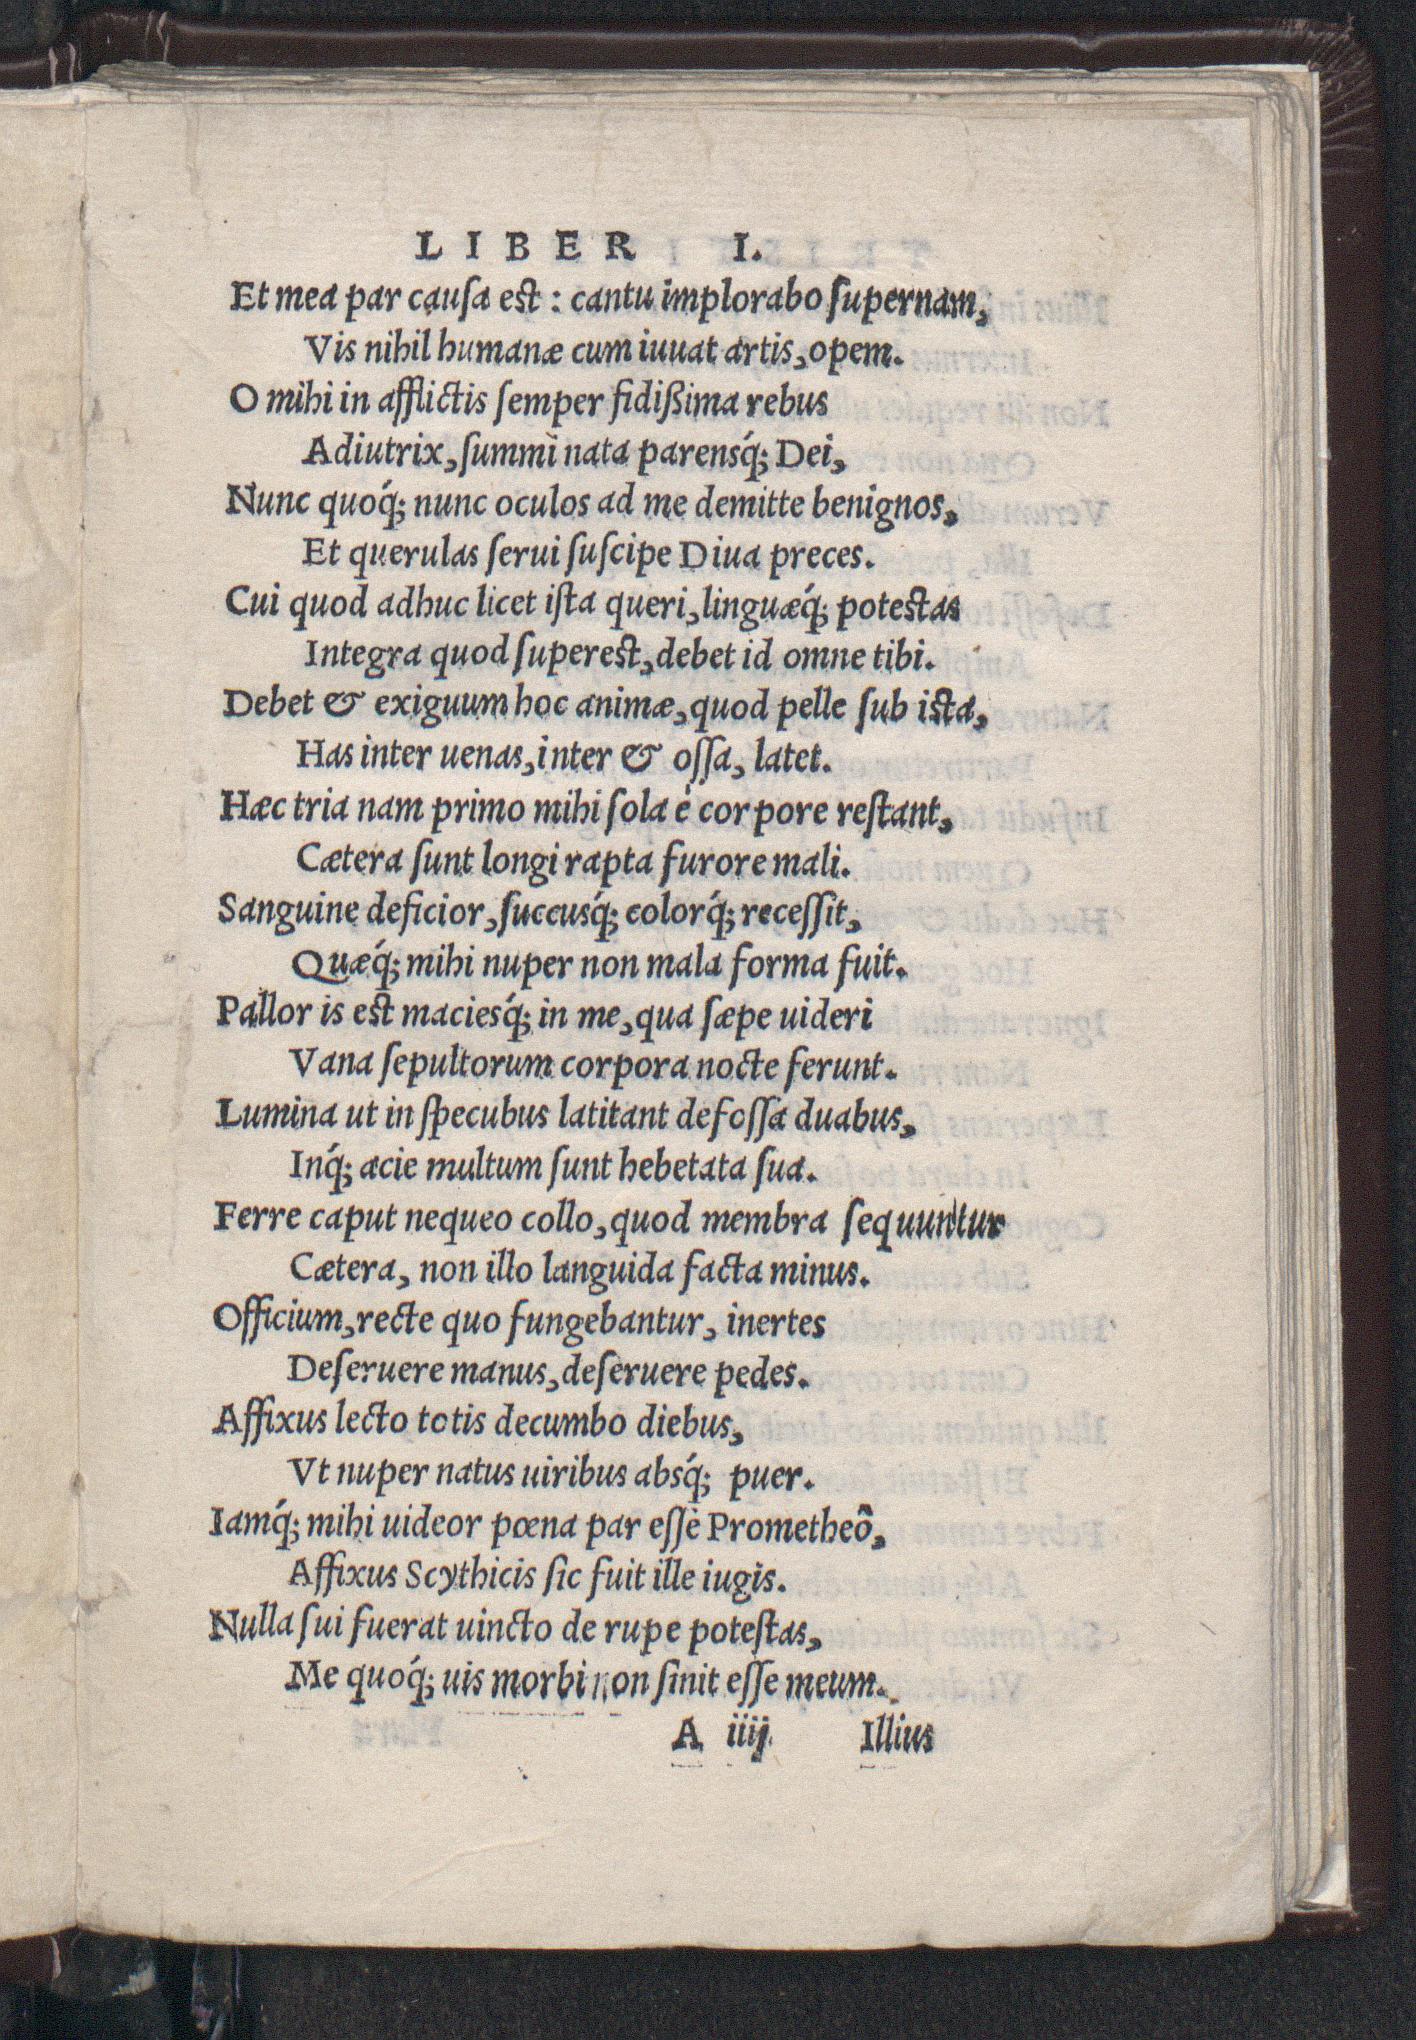 LIBER I.
Et mea par cauſa est : cantu implorabo ſupernam,
Vis nihil humanæ cum iuuat artis, opem.
O mihi in afflictis ſemper fidißima rebus
Adiutrix, ſummi nata parensq́; Dei,
Nunc quoq́; nunc oculos ad me demitte benignos,
Et querulas ſerui ſuſcipe Diua preces.
Cui quod adhuc licet iſta queri, linguæq́; potestas
Integra quod ſuperest, debet id omne tibi.
Debet & exiguum hoc animæ, quod pelle ſub ista,
Has inter uenas, inter & oſſa, latet.
Hæc tria nam primo mihi ſola è corpore reſtant,
Cætera ſunt longi rapta furore mali.
Sanguine deficior, ſuccusq́; colorq́; receſſit,
Quæq́; mihi nuper non mala forma fuit.
Pallor is est maciesq́; in me, qua ſæpe uideri
Vana ſepultorum corpora nocte ferunt.
Lumina ut in ſpecubus latitant defoſſa duabus,
Inq́; acie multum ſunt hebetata ſua.
Ferre caput nequeo collo, quod membra ſequuntur
Cætera, non illo languida facta minus.
Officium, recte quo fungebantur, inertes
Deſeruere manus, deſeruere pedes.
Affixus lecto totis decumbo diebus,
Vt nuper natus uiribus absq́; puer.
Iamq́; mihi uideor pœna par eſſe Prometheô,
Affixus Scythicis ſic fuit ille iugis.
Nulla ſui fuerat uincto de rupe poteſtas,
Me quoq́; uis morbi non ſinit eſſe meum.
A iiij Illius